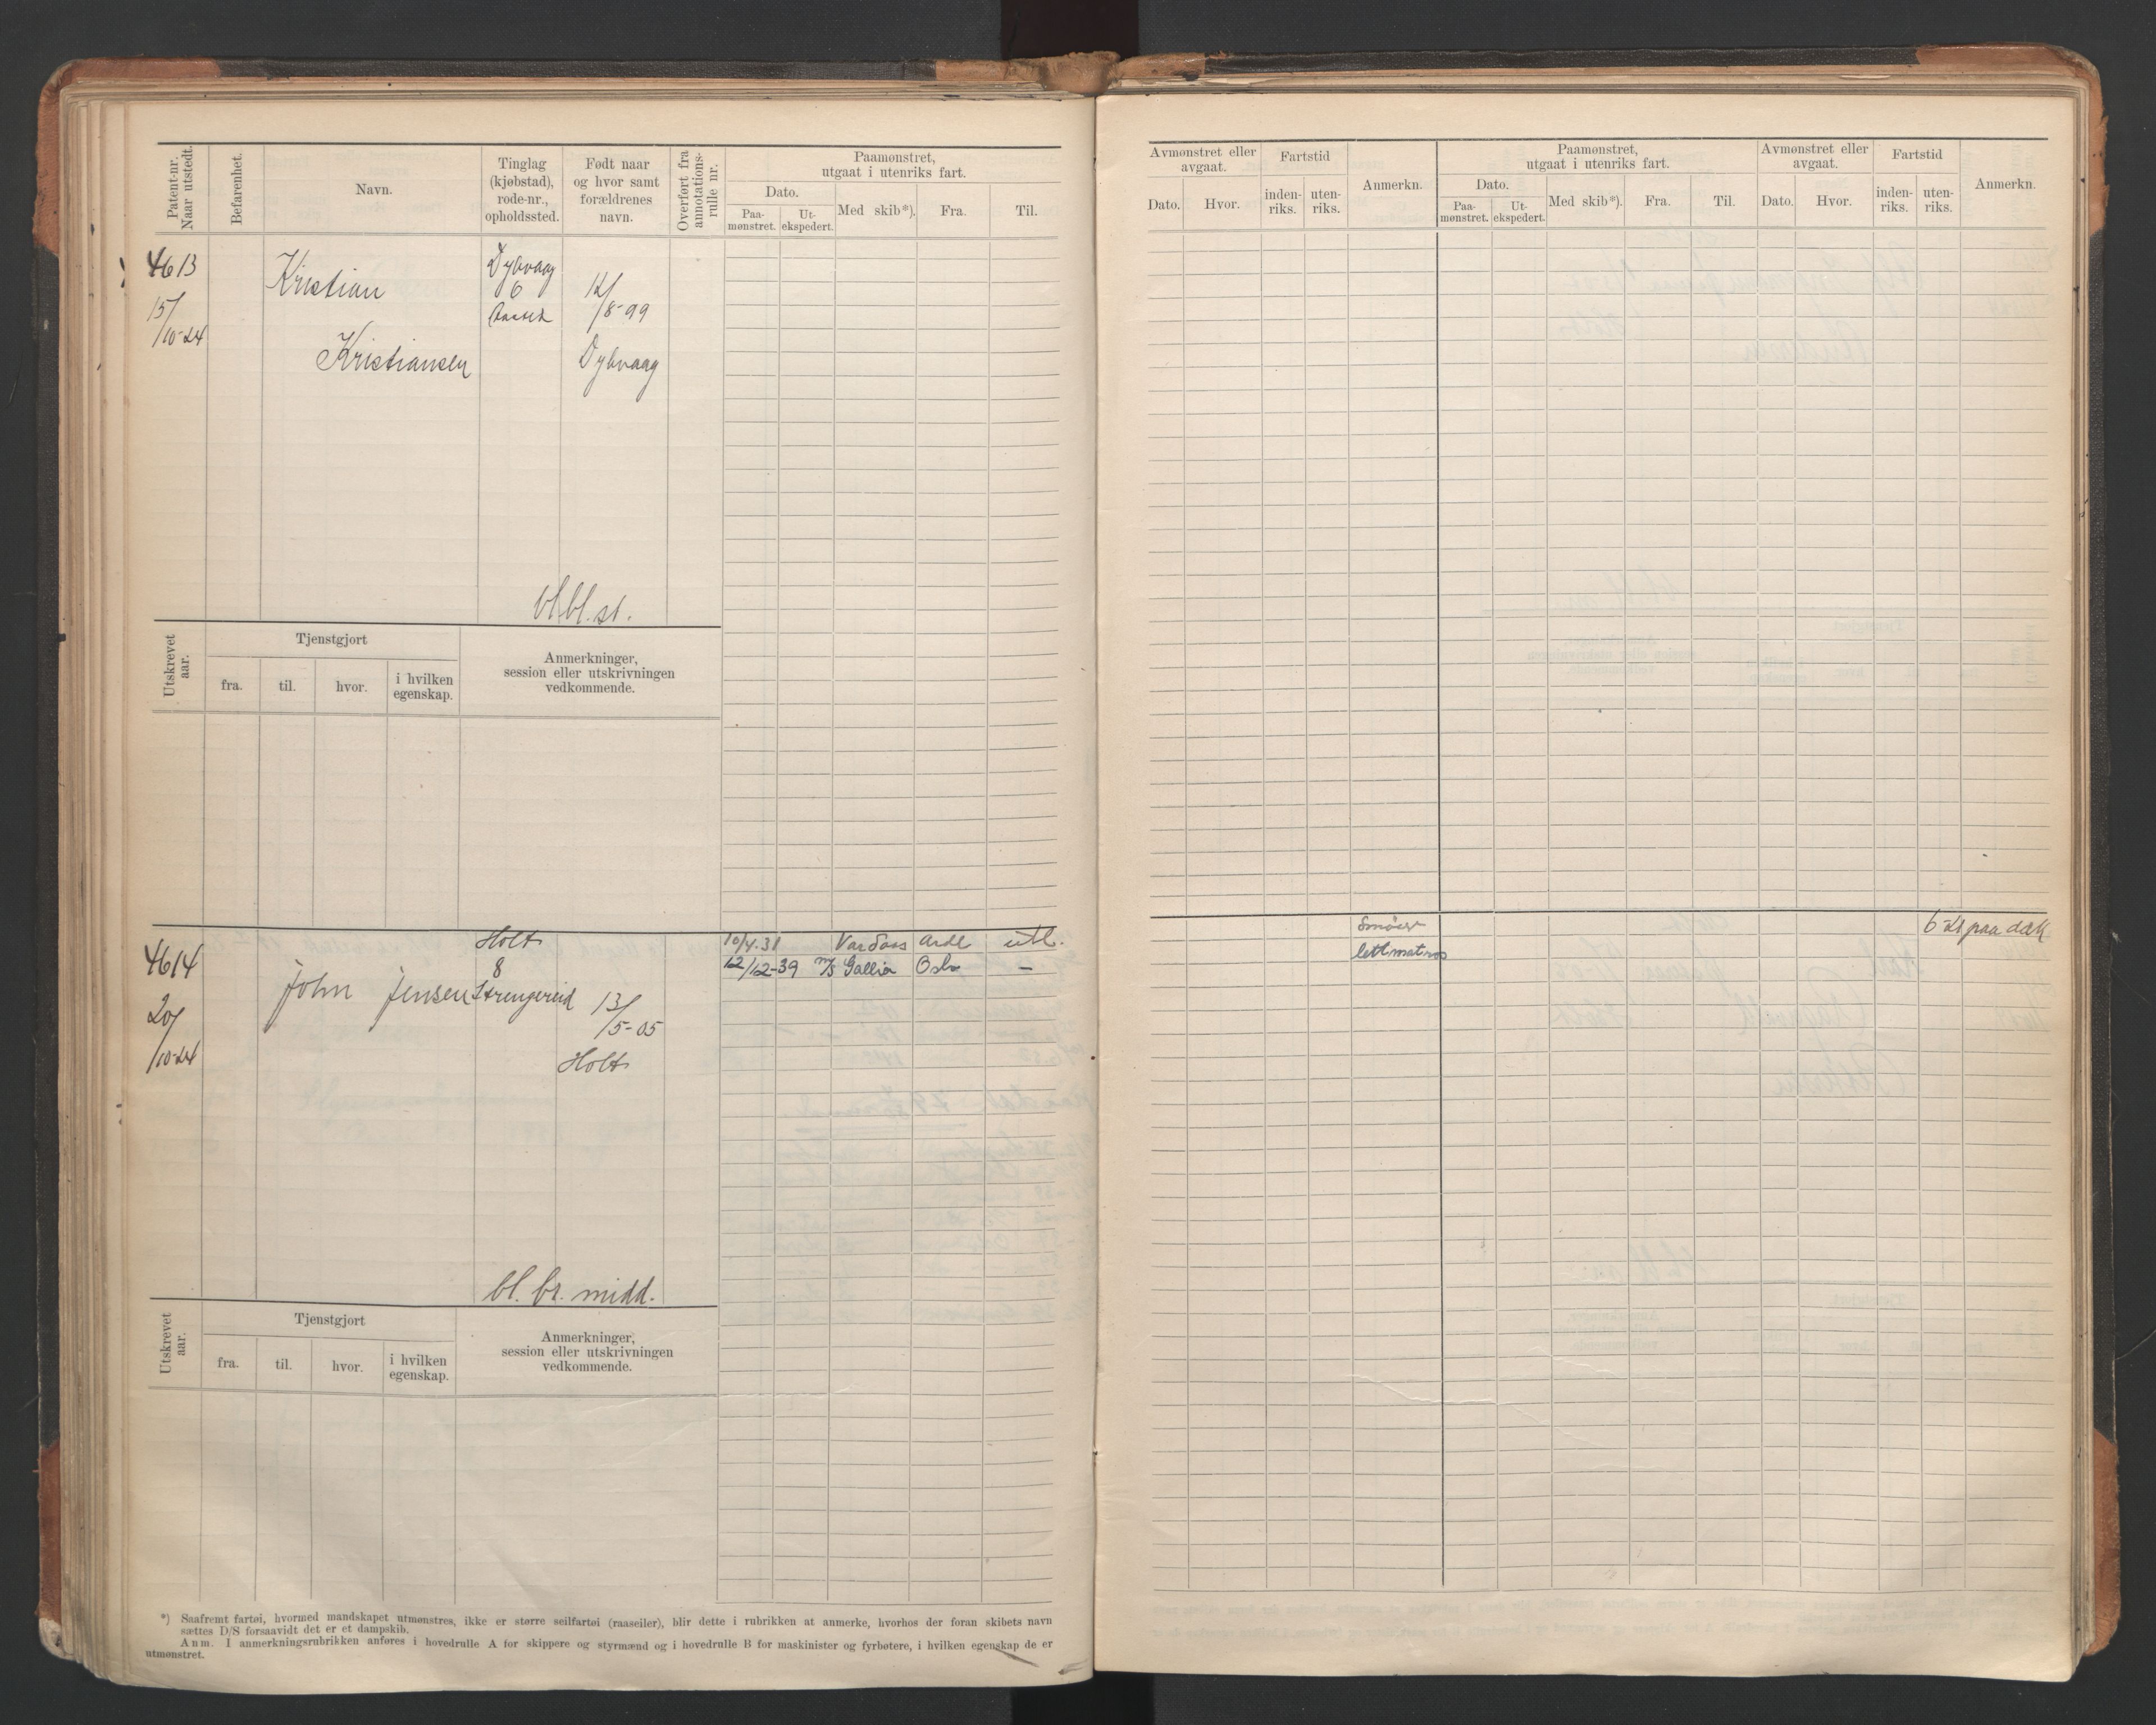 Patent-nr. Naar utstedt.
Befarenhet.
Navn.
Tinglag (kjøbstad), rode-nr., opholdssted.
Født naar og hvor samt forældrenes navn.
Overført fra annotations-rulle nr.
Paamønstret, utgaat i utenriks fart.
Dato.
Paa-mønstret.
Ut-ekspedert.
Med skib*).
Fra.
Til.
4613
15/10-24
Kristian
Kristiansen
Dybvaag
6
12/8-99
Dybvaag
bl.bl.st.
Utskrevet aar.
Tjenstgjort
fra.
til.
hvor.
i hvilken egenskap.
Anmerkninger, session eller utskrivningen vedkommende.
4614
20/10-24
John Jensen
Holt
8
Strengereid
13/5-05
Holt
bl. br. midd.
10/4.31 Vardaas Ardl utl.
12/12-39 M/S Gallia Oslo —
Utskrevet aar.
Tjenstgjort
fra.
til.
hvor.
i hvilken egenskap.
Anmerkninger, session eller utskrivningen vedkommende.
*) Saafremt fartøi, hvormed mandskapet utmønstres, ikke er større seilfartøi (raaseiler), blir dette i rubrikken at anmerke, hvorhos der foran skibets navn
sættes D/S forsaavidt det er et dampskib.
Anm. I anmerkningsrubrikken anføres i hovedrulle A for skippere og styrmænd og i hovedrulle B for maskinister og fyrbøtere, i hvilken egenskap de er
utmønstret.
Avmønstret eller avgaat.
Dato.
Hvor.
Fartstid
inden-riks.
uten-riks.
Anmerkn.
Paamønstret, utgaat i utenriks fart.
Dato.
Paa-mønstret.
Ut-ekspedert.
Med skib*).
Fra.
Til.
Avmønstret eller avgaat.
Dato.
Hvor.
Fartstid
inden-riks.
uten-riks.
Anmerkn.
Smører
lettmatros
6-21 paa dæk